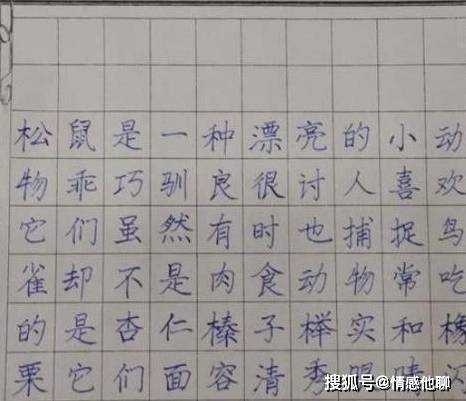 松鼠是一种漂亮的小动
物乖巧驯良很讨人喜欢
它们虽然有时也捕捉鸟
雀却不是肉食动物常吃
的是杏仁榛子榉实和橡
栗它们面容清秀眼睛
搜狐号@情感他聊